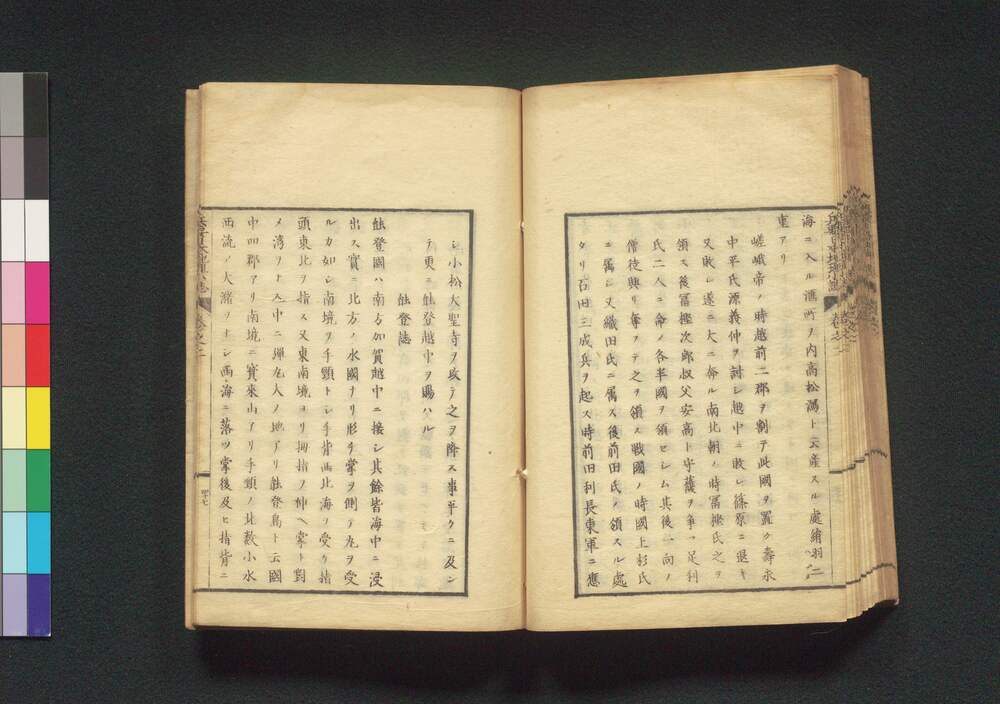 海ニ入ル滙所ヲ内高松潟ト云産スル處絹羽二
重アリ
嵯峨帝ノ時越前二郡ヲ割テ此國ヲ置ク壽永
中平氏源義仲ヲ討シ越中ニ敗レ篠原ニ退キ
又敗レ遂ニ大ニ奔ル南北朝ノ時冨樫氏之ヲ
領ス後冨樫次郎叔父安高ト守護ヲ爭フ足利
氏二人ニ命メ各半國ヲ領セシム其後一向ノ
僧徒興リ奪フテ之ヲ領ス戰國ノ時國上杉氏
ニ属シ又織田氏ニ属ス後前田氏ノ領スル處
タリ石田三成兵ヲ起ス時前田利長東軍ニ應
シ小松大聖寺ヲ攻テ之ヲ降ス事平クニ及ン
テ更ニ能登越中ヲ賜ハル
能登誌
能登國ハ南方加賀越中ニ接シ其餘皆海中ニ浸
出ス實ニ北方ノ水國ナリ形チ掌ヲ側テ九ヲ受
ルカ如シ南境ヲ手頸トシ手背西北海ヲ受ケ指
頭東北ヲ指ス又東南境ヨリ拇指ノ仲ヘ掌ト對
メ湾ヲナス中ニ彈丸大ノ地アリ能登島ト云國
中四郡アリ南境ニ寳來山アリ手頸ノ北數小水
西流ノ大瀦ヲナシ西海ニ落ツ掌後及ヒ指背ニ
兵要日本地理小誌 卷之二
四十七